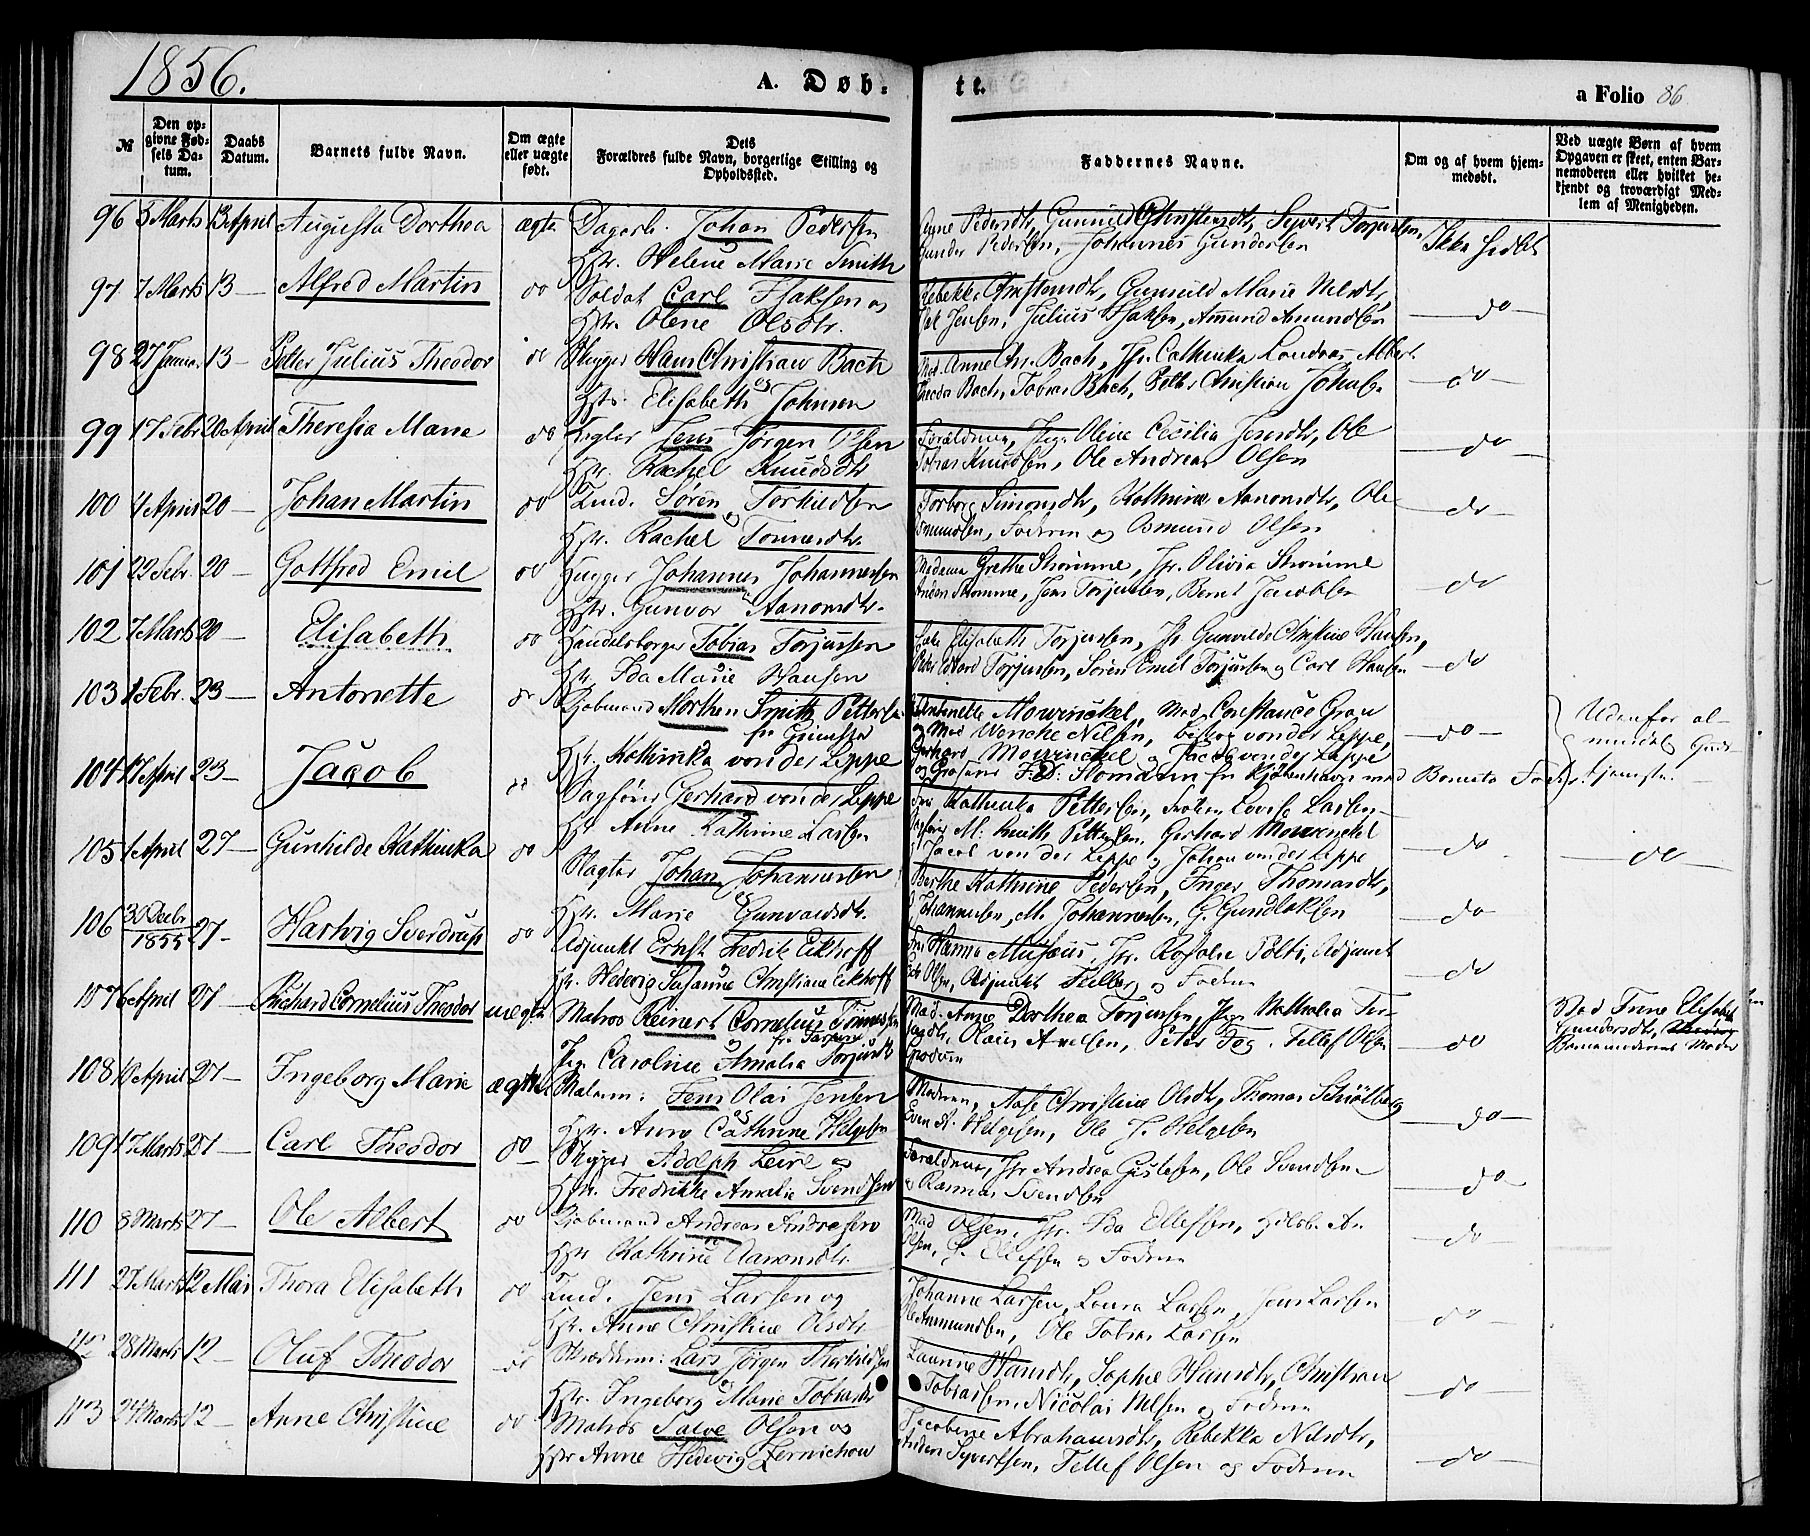 1856.
A. Døb-
te.
a Folio 86
№
Den opgivne Fødsels Datum.
Daabs Datum.
Barnets fulde Navn.
Om ægte eller uægte født.
Dets Forældres fulde Navn, borgerlige Stilling og Opholdssted.
Faddernes Navne.
Om og af hvem hjemmedøbt.
Ved uægte Børn af hvem Opgaven er skeet, enten Barnemoderen eller hvilket bekjendt og troværdigt Medlem af Menigheden.
96 3 Marts 13 April Augusta Dorthea ægte Dagarb. Johan Pedersen
Hstr. Helene Marie Smith
Anne Pedersdtr, Gunnild Christensdtr, Syvert Torjussen,
Gunder Pedersen, Johannes Gundersen
Ikke hjdbt
97 7 Marts 13 — Alfred Martin do Soldat Carl Isaksen og
Hstr. Olene Olsdtr.
Rebekka Christensdtr, Gunnild Marie Nilsdtr,
Jensen, Julius Isaksen, Amund Amundsen
— do —
98 27 Janua. 13 — Petter Julius Theodor do Skipper Hans Christian Bach
og
Hstr. Elisabeth Johnsen
Mad. Anne Chr. Bach, Jfr. Cathinka Albert
Theodor Bach, Tobias Bach, Petter Christian
— do —
99 17 Febr 20 April Theresia Marie do Jens Jørgen Olsen
Hstr. Rachel Knudsdtr
Forældrene, Pige Oline Cecilia Jensdtr, Ole
Tobias Knudsen, Ole Andreas Olsen
— do —
100 4 April 20 — Johan Martin do Tind. Søren Torkildsen
og
Hstr. Rachel Tønnesdtr.
Torborg Simonsdtr, Kathrine Aanonsdtr, Ole
Osmundsen, Faderen og Osmund Olsen
— do —
101 22 Febr. 20 — Gottfred Emil do Johannes Johannessen
Hstr. Gunvor Aanonsdtr.
Madame Grethe Strømme, Jfr. Olivia Strømme
Strømme, Jens Torjussen, Bernt Jacobsen
do
102 7 Marts 20 — Elisabeth do Handelsborger Tobias Torjussen
Hstr. Ida Marie Hansen
Elisabeth Torjussen, Jfr Gunvilde Christine Hansen,
Torjussen, Søren Emil Torjussen og Carl Hansen
— do
103 1 Febr. 23 — Antonette do Kjøbmand Morthen Smith Pettersen
fr Grimstad
Hstr. Kathinka von der Lippe
Antonette Mowinckel, Mad. Constance Gran
og Mad Wencke Nilsen, von der Lippe,
Gerhard Mowinckel og Jacob von der Lippe
og Fr Kjøbenhavn med
— do —
Udenfor almindelig Gudstjeneste.
104 17 April 23 — Jacob do Sagfører Gerhard von der Lippe
Hstr Anne Kathrine Larsen
Fru Kathinka Pettersen, Frøken Lovise Larsen,
M. Smith Pettersen, Gerhard Mowinckel
Jacob von der Lippe og Johan von der Lippe
— do
— do —
105 1 April 27 — Gunhilde Kathinka do Slagter Johan Johannessen
og
Hstr. Marie Gunvaldsdtr.
Berthe Kathrine Pedersen, Inger Thomasdtr,
Johannessen, M. Johannessen, G. Gundlaksen
— do
106 30 Decbr 1855 27 — Hartvig Sverdrup do Adjunkt Ernst Fredrik Eckhoff
Hstr. Hedevig Susanne Christiane Eckhoff
Fru Hanna Musæus, Jfr. Rosalie Adjunct
Olsen, Adjunkt og Faderen
— do
107 6 April 27 — Richard Cornelius Theodor uægte Matros Reinert Cornelius Tønnessen
Pige Caroline Amalia Torjusdtr
Mad. Anne Dorthea Torjussen, Pige Nathalia Ter-
Olaus Axelsen, Peter Fog, Tellef Olsen
— do
Mad Trine Elisabeth
Gundersdtr,
Barnemoderens Moder
108 10 April 27 — Ingeborg Marie ægte Matern: Jens Olai Jensen
og
Hstr. Anne Cathrine Helgesen
Moderen, Aase Christine Olsdtr, Thomas
Even A. Helgesen, Ole J. Helgesen
— do —
109 17 Marts 27 — Carl Theodor do — Skipper Adolph Leire og
Hstr. Fredrikke Amalie Svendsen
Forældrene, Jfr Andrea Gislesen, Ole Svendsen
og Rasmus Svendsen
— do —
110 8 Marts 27 — Ole Albert do Kjøbmand Andreas Andreasen
og
Hstr Kathrine Aanonsdtr.
Mad Olsen, Jfr. Ida Ellefsen,
Olsen, Ellefsen og Faderen
— do
111 27 Marts 12 Mai Thora Elisabeth do Tind. Jens Larsen og
Hstr. Anne Christine Olsdtr
Johanne Larsen, Laura Larsen, Jens Larsen
Ammundsen, Ole Tobias Larsen
do —
112 28 Marts 12 — Oluf Theodor do Skrædderm: Lars Jørgen Therkildsen
og
Hstr. Ingeborg Marie Tobiasdtr
Hansdtr, Sophie Hansdtr, Christian
Tobiassen, Nicolai Nilsen og Faderen
— do —
113 24 Marts 12 — Anne Christine do Matros Salve Olsen og
Hstr Anne Hedevig Zernichow
Jacobine Abrahamsdtr, Rebekka Nilsdtr,
Syvertsen, Tellef Olsen og Faderen
— do —